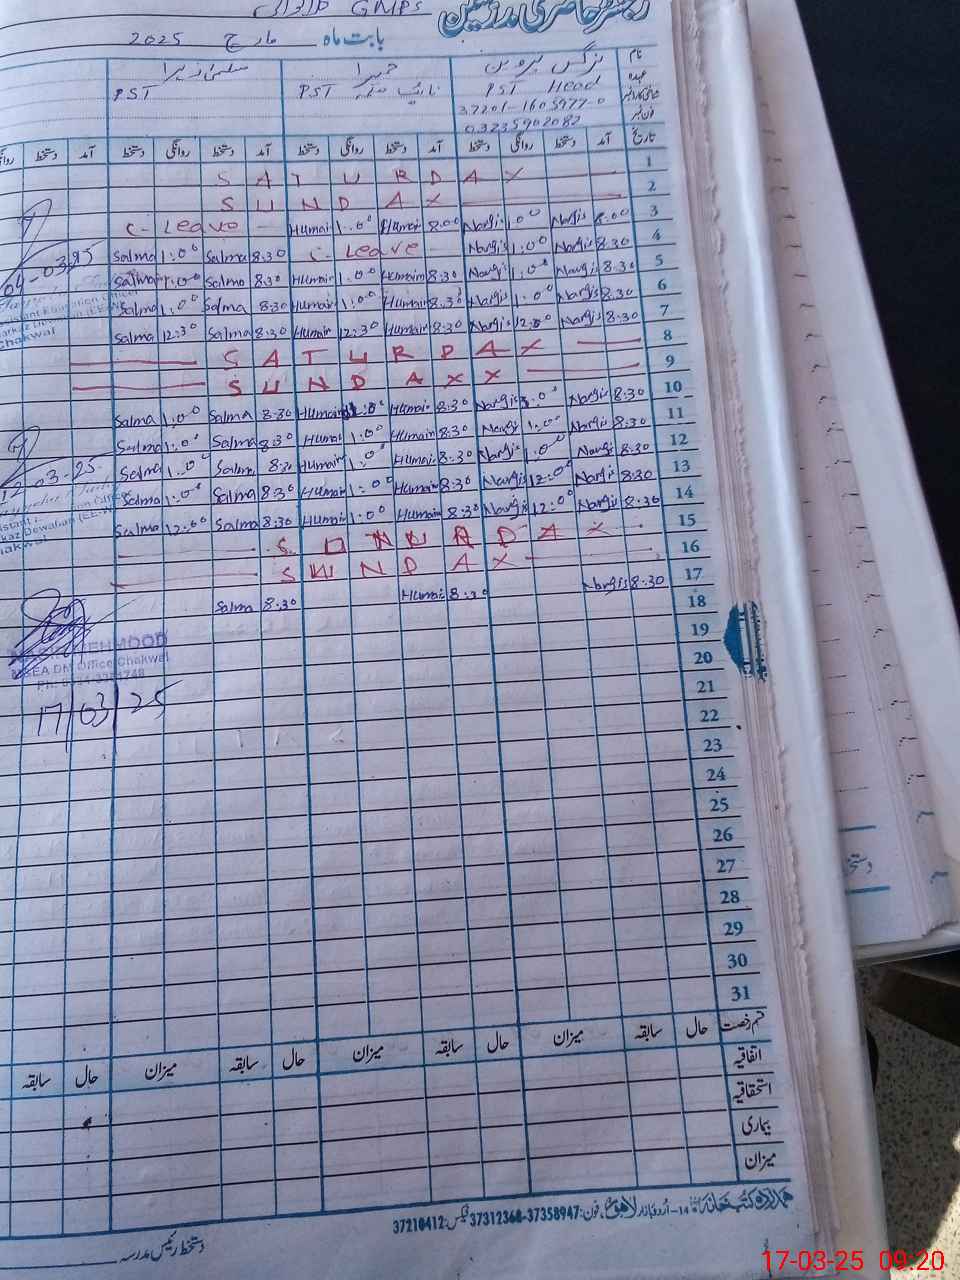 رجسٹر حاضری مدرسین GMPS
بابت ماہ مارچ 2025
نام نرگس پروین حمیرا
عہدہ PST Head PST PST
37201-1605977-0
فون نمبر 03235902082
تاریخ آمد دستخط روانگی دستخط آمد دستخط روانگی دستخط آمد دستخط روانگی دستخط آمد دستخط
1 SATURDAY
2 SUNDAY
3 8:00 Nargis 1:00 Nargis 8:00 Humair 1:00 Humair C- Leave
4 8:30 Nargis 1:00 Nargis C- Leave 8:30 Salma 1:00 Salma
5 8:30 Nargis 1:00 Nargis 8:30 Humair 1:00 Humair 8:30 Salma 1:00 Salma
6 8:30 Nargis 1:00 Nargis 8:30 Humair 1:00 Humair 8:30 Salma 1:00 Salma
7 8:30 Nargis 12:30 Nargis 8:30 Humair 12:30 Humair 8:30 Salma 12:30 Salma
8 SATURDAY
9 SUNDAY
10 8:30 Nargis 1:00 Nargis 8:30 Humair 1:00 Humair 8:30 Salma 1:00 Salma
11 8:30 Nargis 1:00 Nargis 8:30 Humair 1:00 Humair 8:30 Salma 1:00 Salma
12 8:30 Nargis 1:00 Nargis 8:30 Humair 1:00 Humair 8:30 Salma 1:00 Salma
13 8:30 Nargis 12:00 Nargis 8:30 Humair 1:00 Humair 8:30 Salma 1:00 Salma
14 8:30 Nargis 12:00 Nargis 8:30 Humair 1:00 Humair 8:30 Salma 12:00 Salma
15
16 SUNDAY
17 8:30 Nargis 8:30 Humair 8:30 Salma
18
19
20
21
22
23
24
25
26
27
28
29
30
31
04-03-25
Chakwal
12-03-25
MEHMOOD
DM Office Chakwal
17/03/25
قسم رخصت حال سابقہ میزان حال سابقہ میزان حال سابقہ میزان حال سابقہ
اتفاقیہ
استحقاقیہ
بیماری
میزان
ہمدرد کتب خانہ 14-اردو بازار لاہور، فون: 37358947-37312360 فیکس: 37210412
دستخط رئیس مدرسہ
17-03-25 09:20